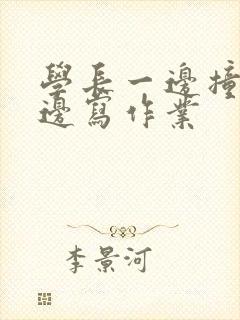 學長一邊撞
邊寫作業
李景河